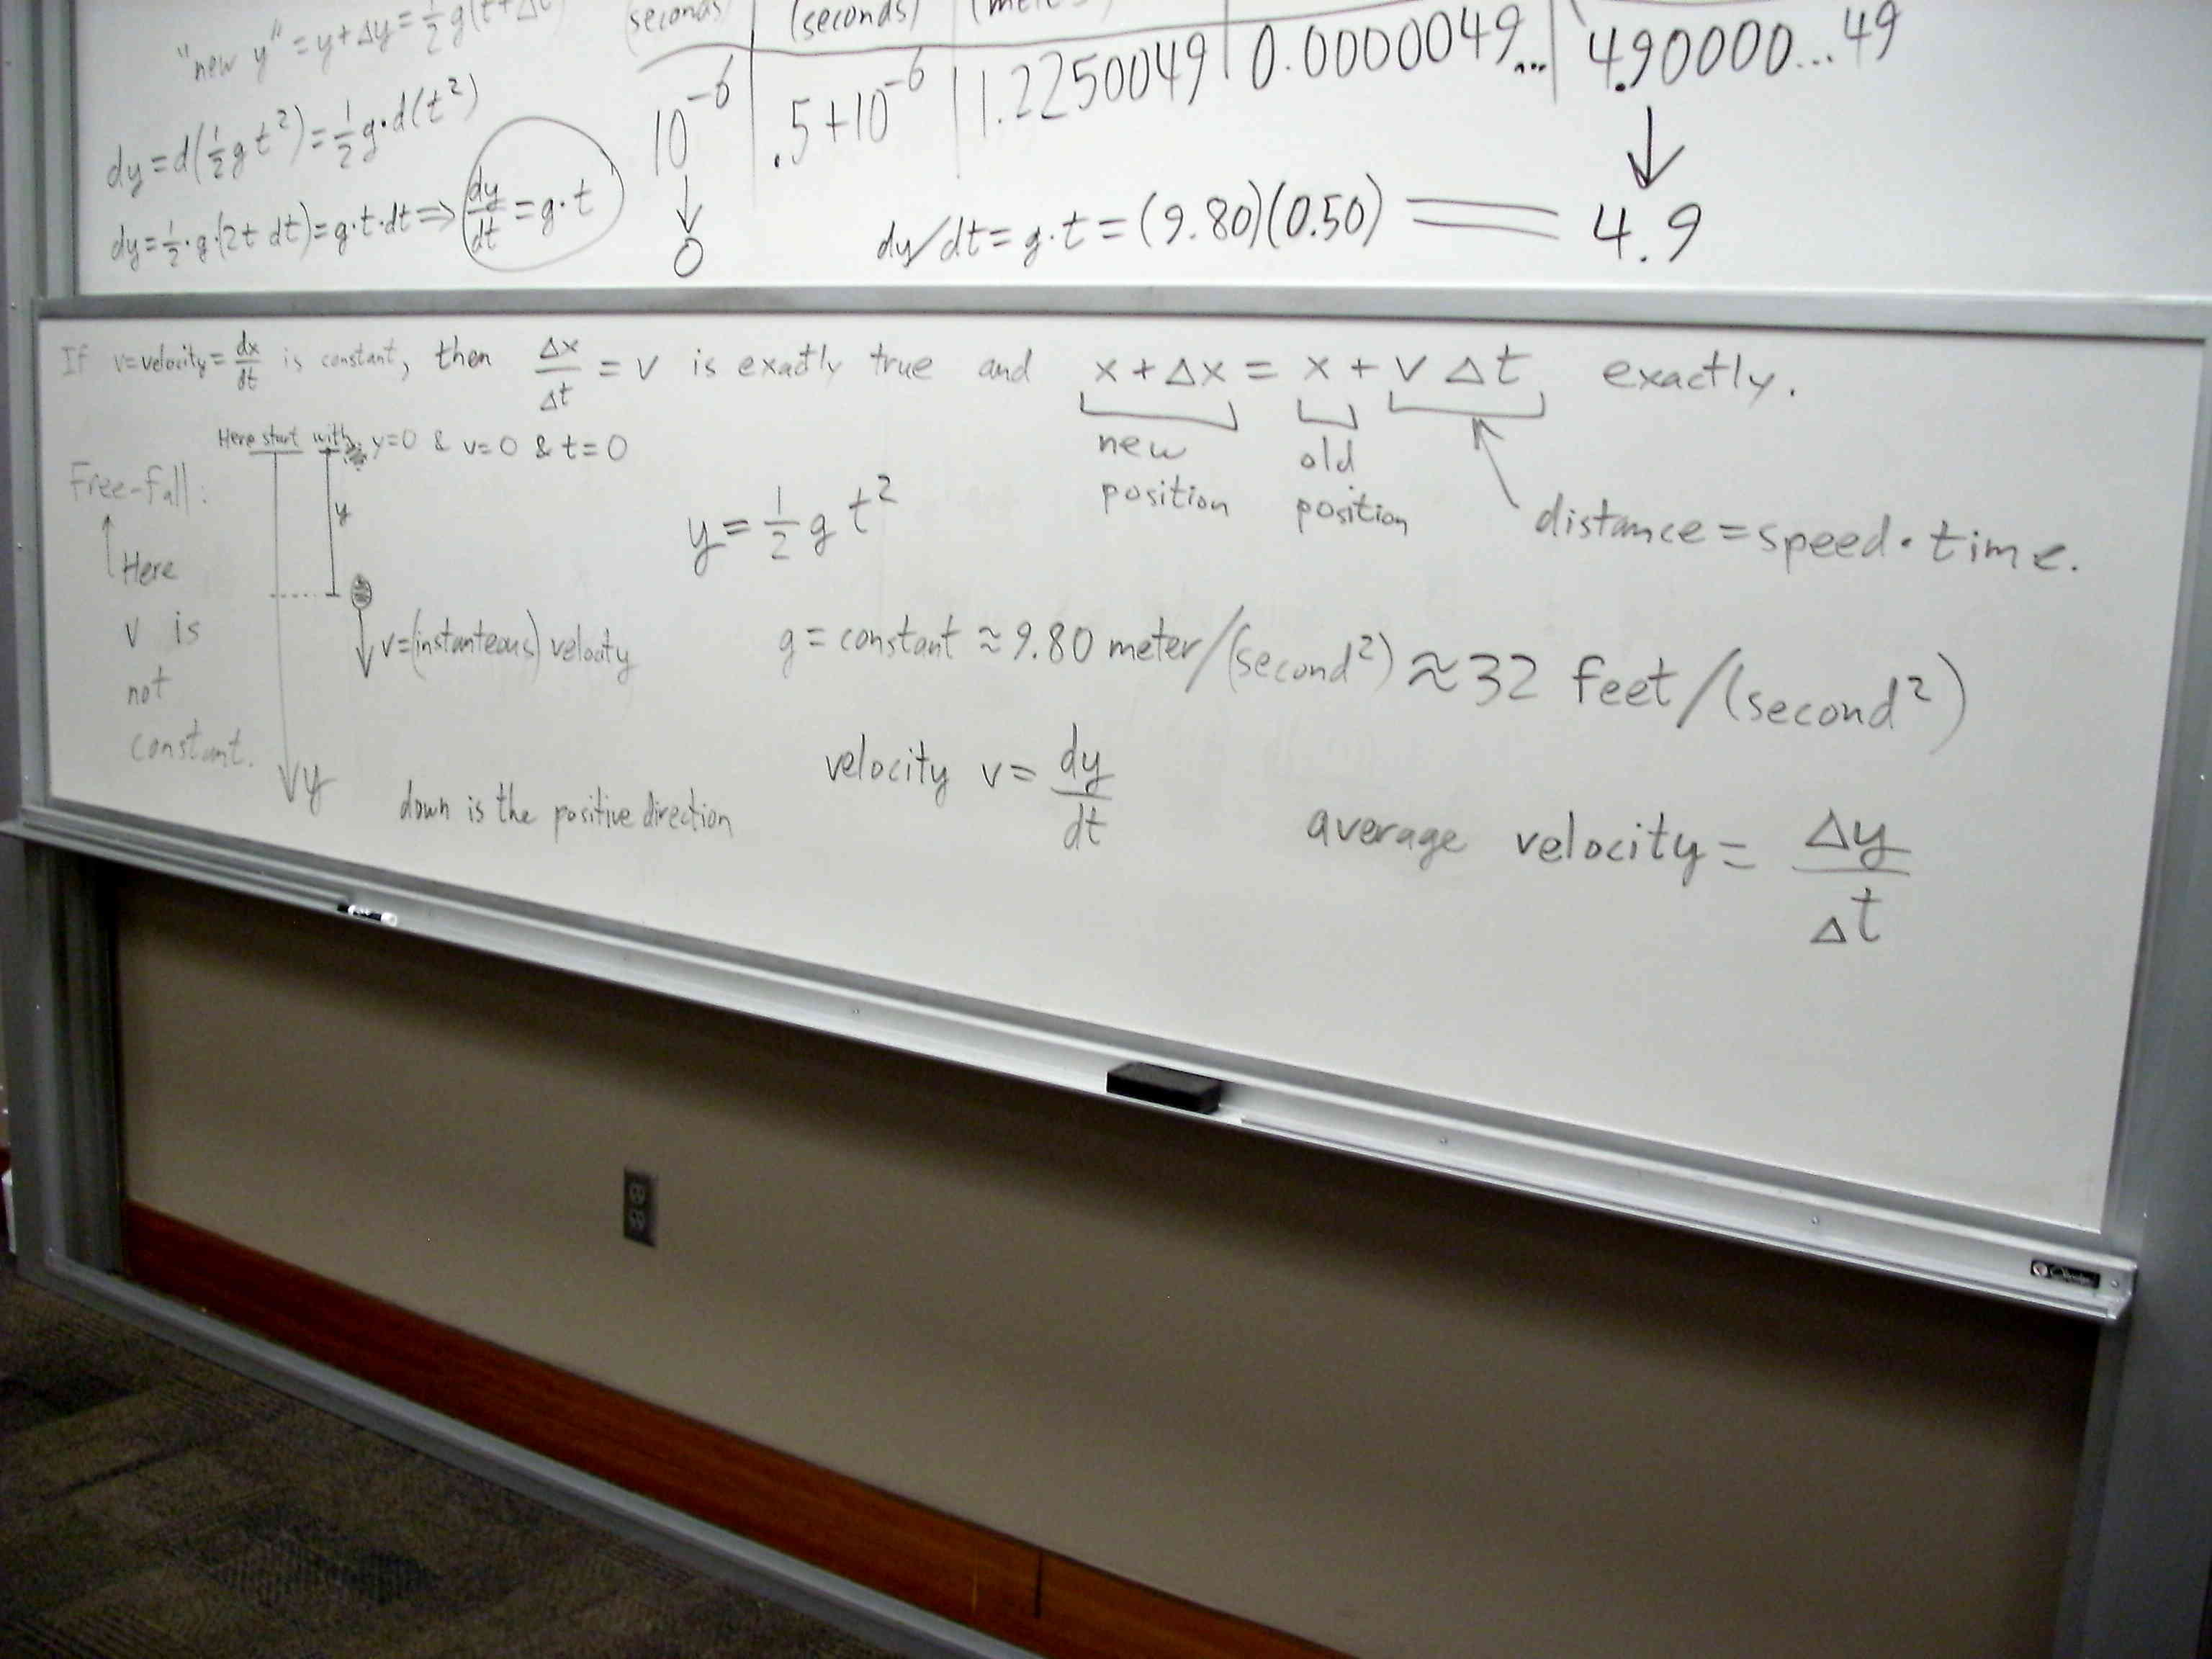 "new y" = y + Δy = ½ g(t + Δt
dy = d(½ g t²) = ½ g · d(t²)
dy = ½ · g · (2t dt) = g · t · dt ⇒ dy/dt = g · t
(seconds) | (seconds) |
10⁻⁶ | .5+10⁻⁶ | 1.2250049 | 0.0000049... | 4.90000...49
↓ ↓
0 dy/dt = g · t = (9.80)(0.50) = 4.9
If v = velocity = dx/dt is constant, then Δx/Δt = v is exactly true and x + Δx = x + v Δt exactly.
new position
old position
distance = speed · time.
Here start with y=0 & v=0 & t=0
Free-fall:
↑ Here
v is
not
constant.
y
v = (instanteous) velocity
y
down is the positive direction
y = ½ g t²
g = constant ≈ 9.80 meter/(second²) ≈ 32 feet/(second²)
velocity v = dy/dt
average velocity = Δy/Δt